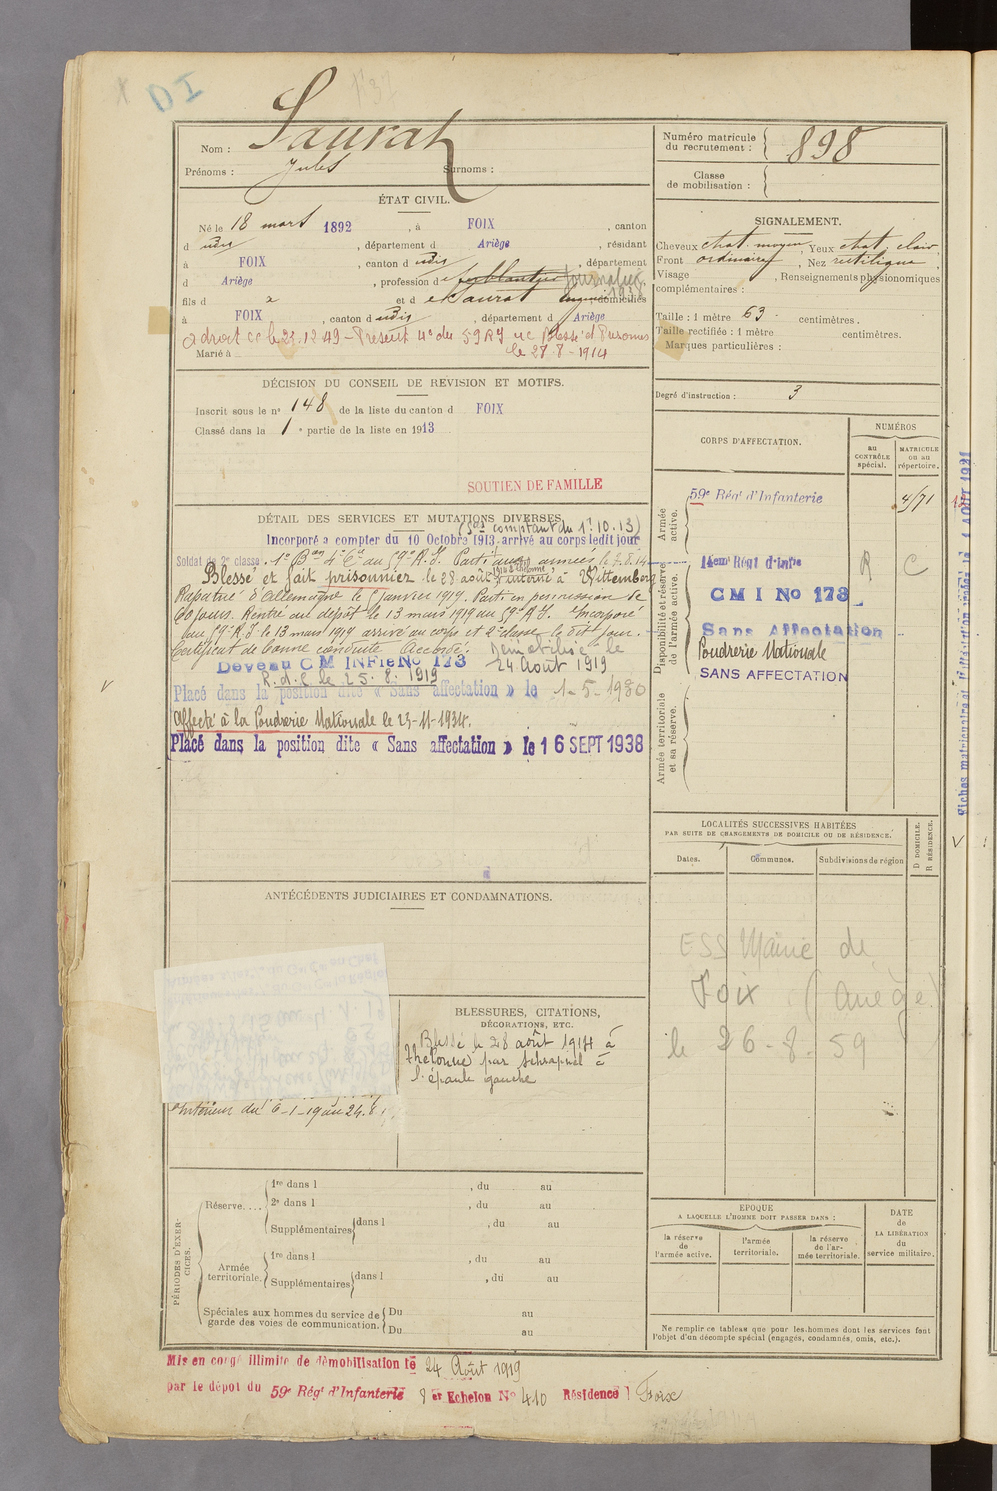 DI
Nom : Saurat
Prénoms : Jules Surnoms :
Numéro matricule du recrutement : 898
Classe de mobilisation :
ÉTAT CIVIL.
Né le 18 mars 1892, à FOIX, canton
d udis, département d Ariège, résidant
à FOIX, canton d udis, département
d Ariège, profession d ferblantier journalier
fils d x et d e Saurat domiciliés
à FOIX, canton d udis, département d Ariège
a droit cc le 23.12.49 - Présent 4e du 59 RI Blessé et Prisonnier
Marié à le 28-8-1914
SIGNALEMENT.
Cheveux chat. moyen, Yeux chat. clair
Front ordinaire, Nez rectiligne
Visage , Renseignements physionomiques
complémentaires :
Taille : 1 mètre 63 centimètres.
Taille rectifiée : 1 mètre centimètres.
Marques particulières :
Degré d'instruction : 3
DÉCISION DU CONSEIL DE REVISION ET MOTIFS.
Inscrit sous le n° 148 de la liste du canton d FOIX
Classé dans la 1e partie de la liste en 1913
SOUTIEN DE FAMILLE
DÉTAIL DES SERVICES ET MUTATIONS DIVERSES.
(Ses comptant du 1er.10.13)
Incorporé a compter du 10 Octobre 1913 arrivé au corps ledit jour
Soldat de 2e classe. 1er Bon 4e Cie au 59e R.I. Parti aux armées le 7.8.14
Blessé et fait prisonnier le 28 août interné à Wittemberg
Rapatrié d'Allemagne le 6 janvier 1919. Parti en permission de
60 jours. Rentré au dépôt le 13 mars 1919 au 59e R.I. Incorporé
au 59e R.I. le 13 mars 1919 arrivé au corps et 2e classe le dit jour.
Certificat de bonne conduite Accordé. Démobilisé le
24 Août 1919
Dévéau C M INFie No 173
R.d.C le 25.8.1919
Placé dans la position dite « Sans affectation » le 1-5-1930
Affecté à la Poudrerie Nationale le 23-11-1934.
Placé dans la position dite « Sans affectation » le 16 SEPT 1938
CORPS D'AFFECTATION.
NUMÉROS
au CONTRÔLE spécial.
MATRICULE ou au répertoire.
Armée active.
59e Régt d'Infanterie 4/71
Disponibilité et réserve de l'armée active.
14eme Régt d'Infie R C
C M I No 173
Sans Affectation
Poudrerie Nationale
SANS AFFECTATION
Armée territoriale et sa réserve.
LOCALITÉS SUCCESSIVES HABITÉES
PAR SUITE DE CHANGEMENTS DE DOMICILE OU DE RÉSIDENCE.
D DOMICILE.
R RÉSIDENCE.
Dates. Communes. Subdivisions de région
ESS Mairie de
Foix (Ariège)
le 26-8-59
ANTÉCÉDENTS JUDICIAIRES ET CONDAMNATIONS.
BLESSURES, CITATIONS,
DÉCORATIONS, ETC.
Blessé le 28 août 1914 à
thelonne par schrapnel à
l'épaule gauche
Intérieur du 6-1-19 au 24.8
PÉRIODES D'EXERCICES.
Réserve....
1re dans l , du au
2e dans l , du au
Supplémentaires dans l , du au
Armée territoriale.
1re dans l , du au
Supplémentaires dans l , du au
Spéciales aux hommes du service de garde des voies de communication.
Du au
Du au
EPOQUE
A LAQUELLE L'HOMME DOIT PASSER DANS :
la réserve de l'armée active.
l'armée territoriale.
la réserve de l'armée territoriale.
DATE de LA LIBÉRATION du service militaire.
Ne remplir ce tableau que pour les hommes dont les services font
l'objet d'un décompte spécial (engagés, condamnés, omis, etc.).
Mis en congé illimité de démobilisation le 24 Août 1919
par le dépot du 59e Régt d'Infanterie 8 er Echelon No 410 Résidence Foix